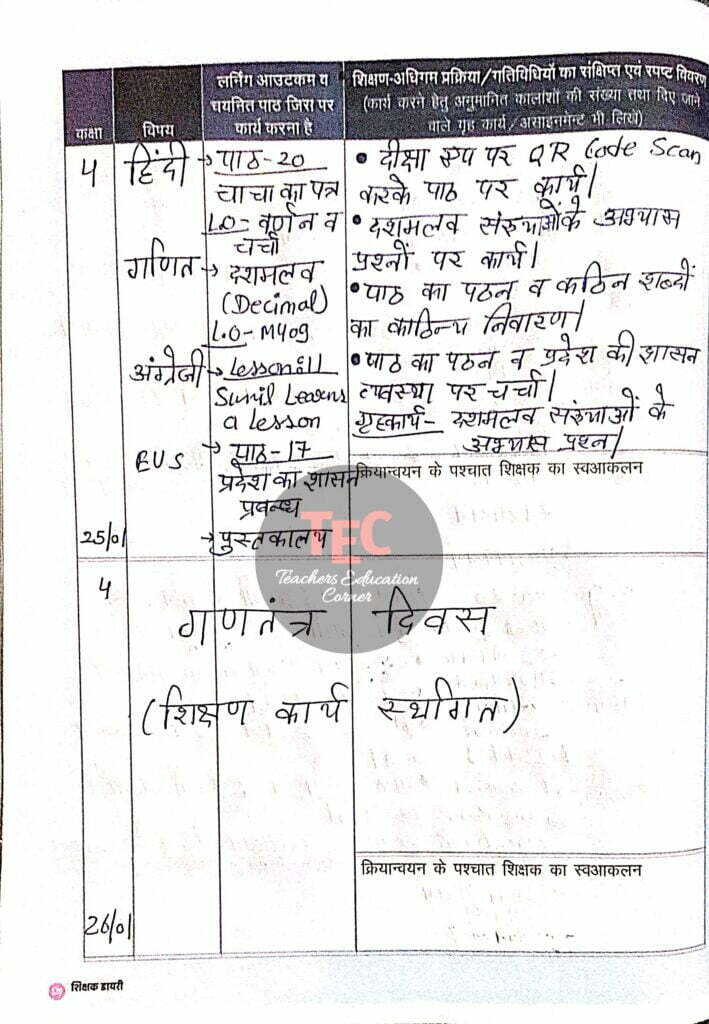 कक्षा
विषय
लर्निंग आउटकम व
चयनित पाठ जिस पर
कार्य करना है
शिक्षण-अधिगम प्रक्रिया/गतिविधियों का संक्षिप्त एवं स्पष्ट विवरण
(कार्य करने हेतु अनुमानित कालांशों की संख्या तथा दिए जाने
वाले गृह कार्य/असाइनमेन्ट भी लिखें)
4
हिंदी → पाठ-20
चाचा का पत्र
LO- वर्णन व
चर्चा
गणित → दशमलव
(Decimal)
L.O-M409
अंग्रेजी → Lesson:11
Sunil Learns
a lesson
EVS → पाठ-17
प्रदेश का शासन
प्रबन्ध
→ पुस्तकालय
25/01
• दीक्षा एप पर QR Code Scan
करके पाठ पर कार्य।
• दशमलव संख्याओं के अभ्यास
प्रश्नों पर कार्य।
• पाठ का पठन व कठिन शब्दों
का काठिन्य निवारण।
• पाठ का पठन व प्रदेश की शासन
व्यवस्था पर चर्चा।
गृहकार्य- दशमलव संख्याओं के
अभ्यास प्रश्न।
क्रियान्वयन के पश्चात शिक्षक का स्वआकलन
TEC
Teachers Education
Corner
4
गणतंत्र दिवस
(शिक्षण कार्य स्थगित)
क्रियान्वयन के पश्चात शिक्षक का स्वआकलन
26/01
शिक्षक डायरी